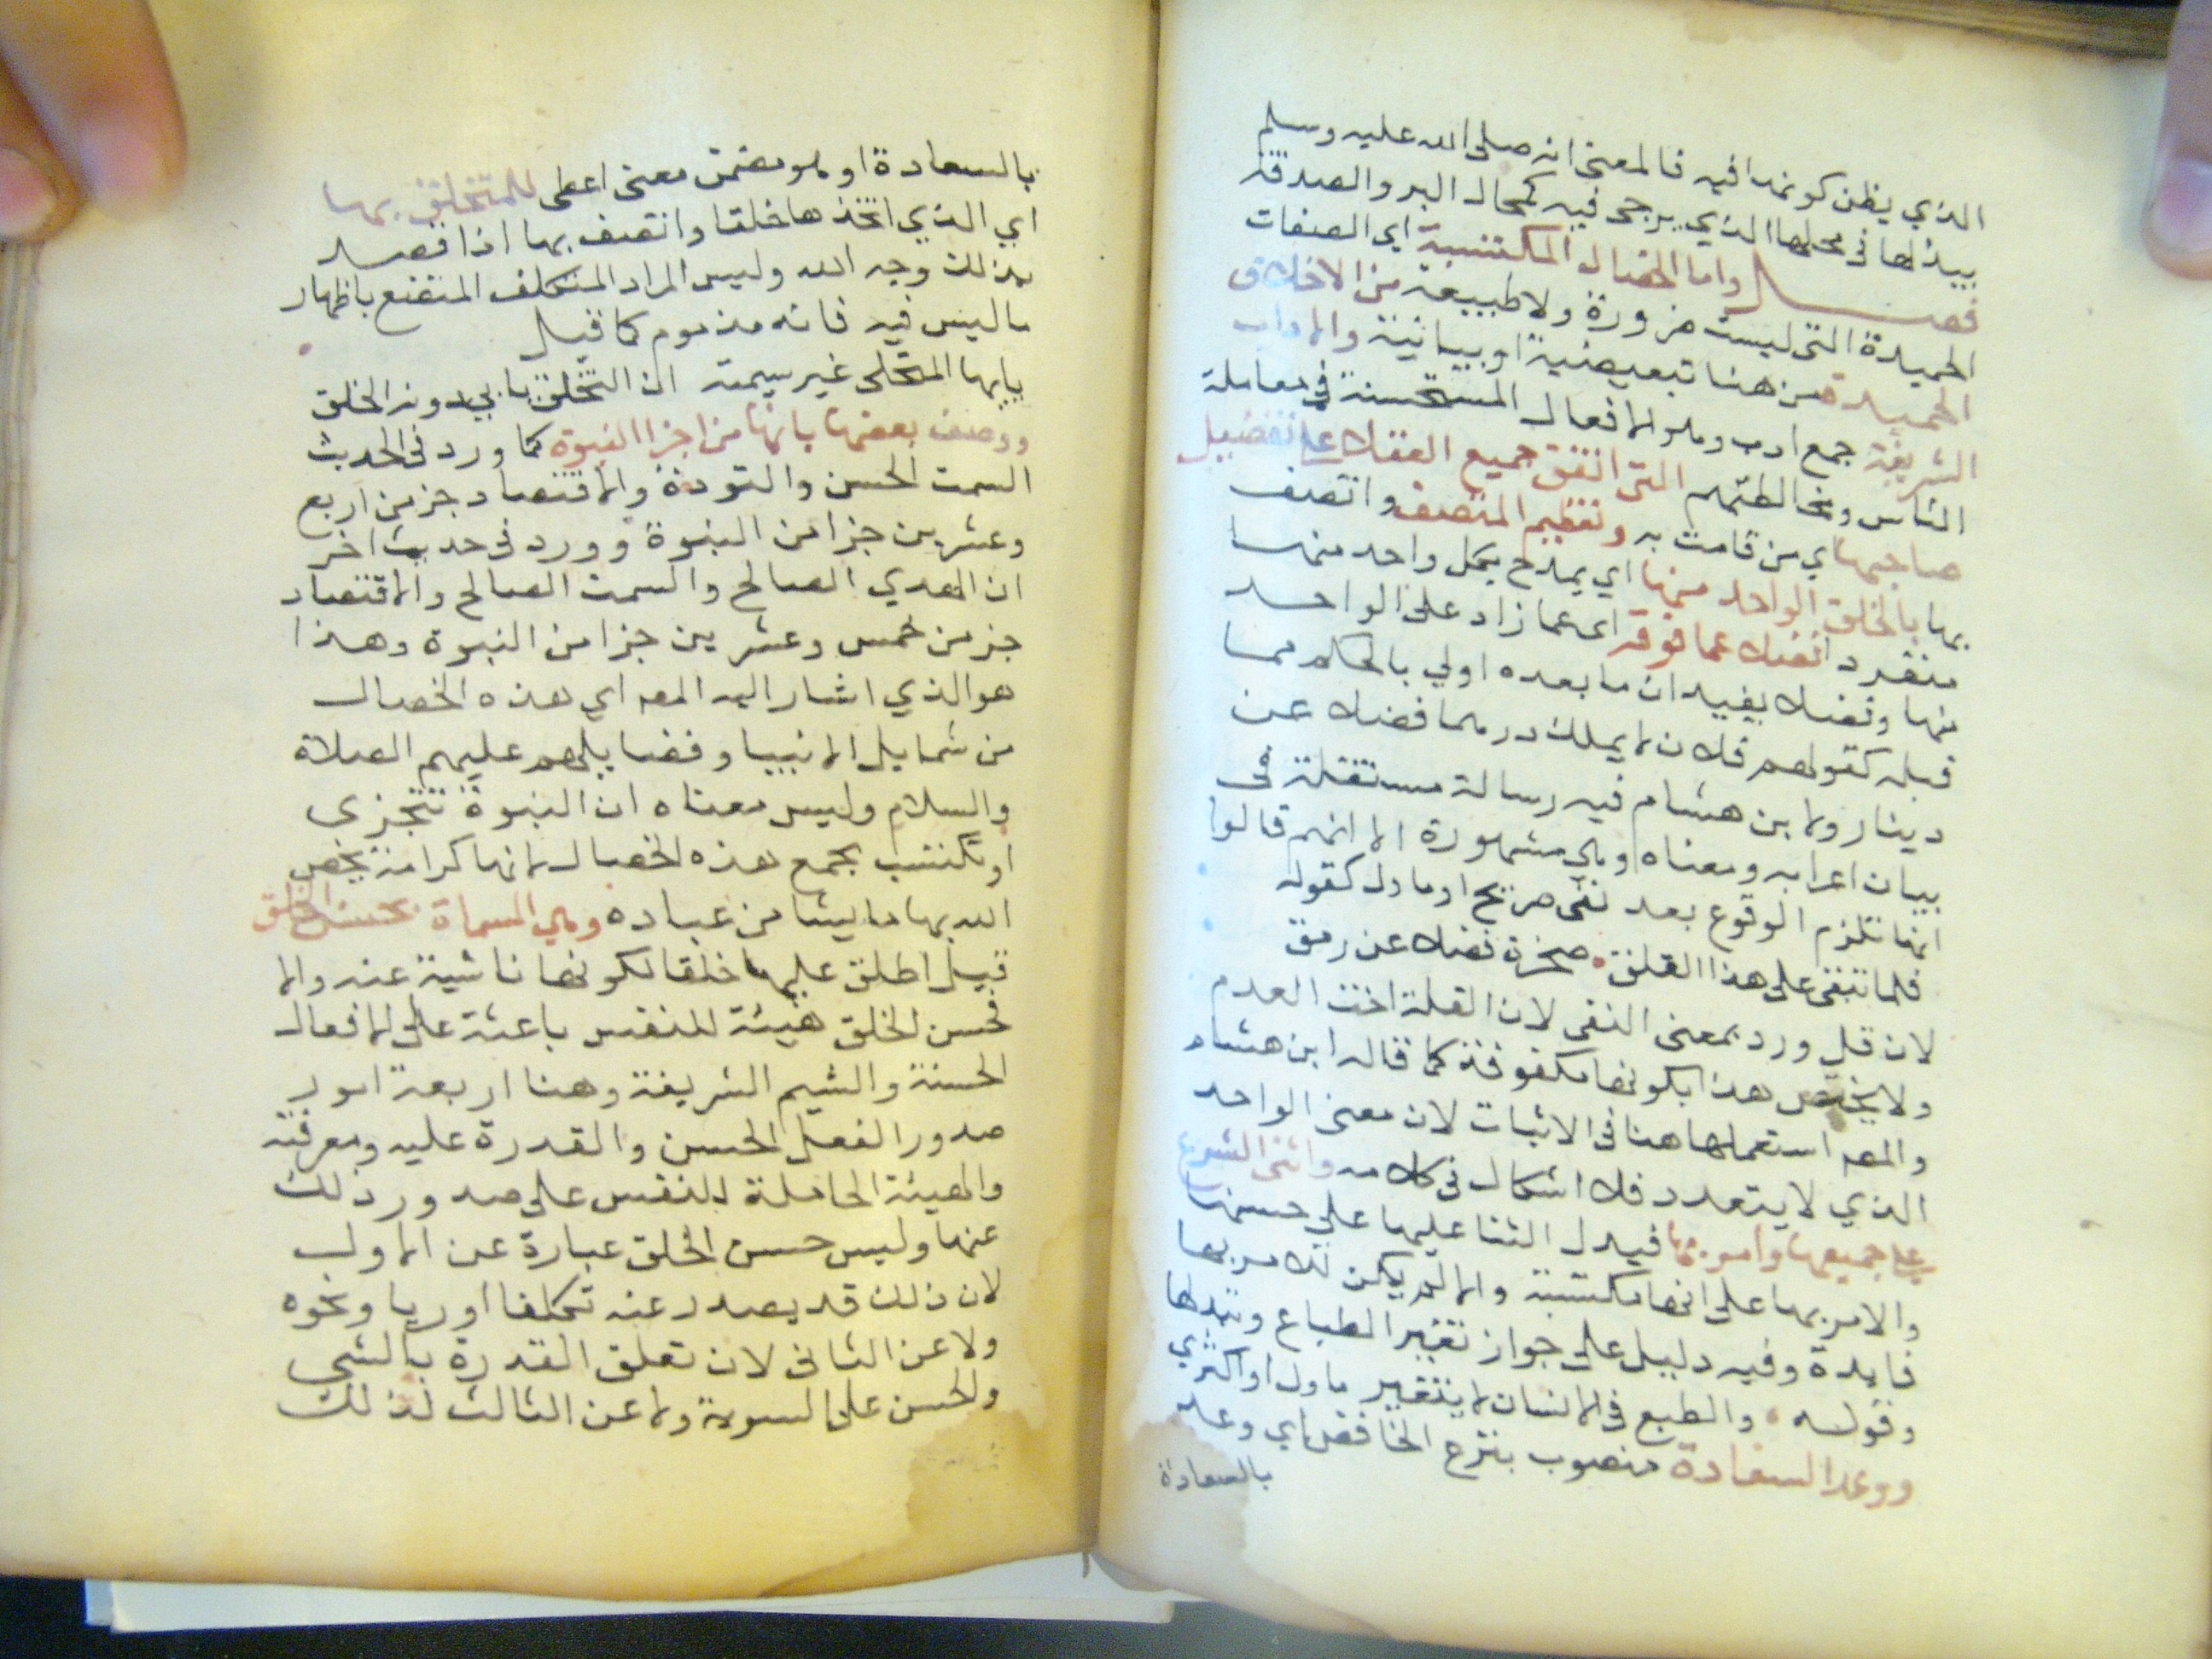 الذي يظن كونه نداه فيه فالمعنى انه صلى الله عليه وسلم
يبذلها في محلها الذي يرجى فيه كمحال البر والصدقة
فصل واما الخصال المكتسبة اي الصفات
الحميدة التي ليست ضرورة ولا طبيعة من الاخلاق
الحميدة من هنا تبعيضية او بيانية والاداب
الشريفة جمع ادب وهو الافعال المستحسنة في معاملة
الناس ومخالطتهم التي اتفق جميع العقلا على تفضيل
صاحبها اي من قامت به وتعظيم المتصف واتصف
بها بالخلق الواحد منها اي يمدح بكل واحد منها
منفرد افضلا عما فوقه اى عما زاد على الواحد
منها وفضلا يفيد ان ما بعده اولي بالحكم مما
قبله كقولهم فلان لا يملك درهما فضلا عن
دينار ولابن هشام فيه رسالة مستقلة في
بيان اعرابه ومعناه وهي مشهورة الا انهم قالوا
انها تلزم الوقوع بعد نفي صريح او ماول كقوله
فلما تبقى على هذا القلق صخرة فضلا عن رمق
لان قل ورد بمعنى النفي لان القلة اخت العدم
ولا يختص هذا بكونها مكفوفة كما قاله ابن هشام
والمص استعملها هنا في الاثبات لان معنى الواحد
الذي لا يتعدد فلا اشكال في كلامه واثنى الشرع
على جميعها وامر بها فيدل الثنا عليها على حسنها
والامر بها على انها مكتسبة والا لم يكن للامر بها
فايدة وفيه دليل على جواز تغير الطباع وتبدلها
وقوله والطبع في الانسان لا يتغير ماول او اكثري
ووعد السعادة منصوب بنزع الخافض اي وعد
بالسعادة
بالسعادة او هو مضمن معنى اعطى للمتخلق بها
اي الذي اتخذها خلقا واتصف بها اذا قصد
بذلك وجه الله وليس المراد المتكلف المتصنع باظهار
ما ليس فيه فانه مذموم كما قيل
يايها المتحلى غير سيمته ان التخلق يابي دونه الخلق
ووصف بعضها بانها من اجزا النبوة كما ورد في الحديث
السمت الحسن والتودة والاقتصاد جز من اربع
وعشرين جزا من النبوة وورد في حديث اخر
ان الهدي الصالح والسمت الصالح والاقتصاد
جز من خمس وعشرين جزا من النبوة وهذا
هو الذي اشار اليه المص اي هذه الخصال
من شمايل الانبيا وفضايلهم عليهم الصلاة
والسلام وليس معناه ان النبوة تتجزى
او تكتسب بجمع هذه الخصال لانها كرامة يخص
الله بها ما يشا من عباده وهي المسماة بحسن الخلق
قيل اطلق عليها خلقا لكونها ناشية عنه والا
فحسن الخلق هيئة للنفس باعثة على الافعال
الحسنة والشيم الشريفة وهنا اربعة امور
صدور الفعل الحسن والقدرة عليه ومعرفته
والهيئة الحاملة للنفس على صدور ذلك
عنها وليس حسن الخلق عبارة عن الاول
لان ذلك قد يصدر عنه تكلفا او ريا ونحوه
ولا عن الثاني لان تعلق القدرة بالشي
والحسن على السوية ولا عن الثالث لذلك